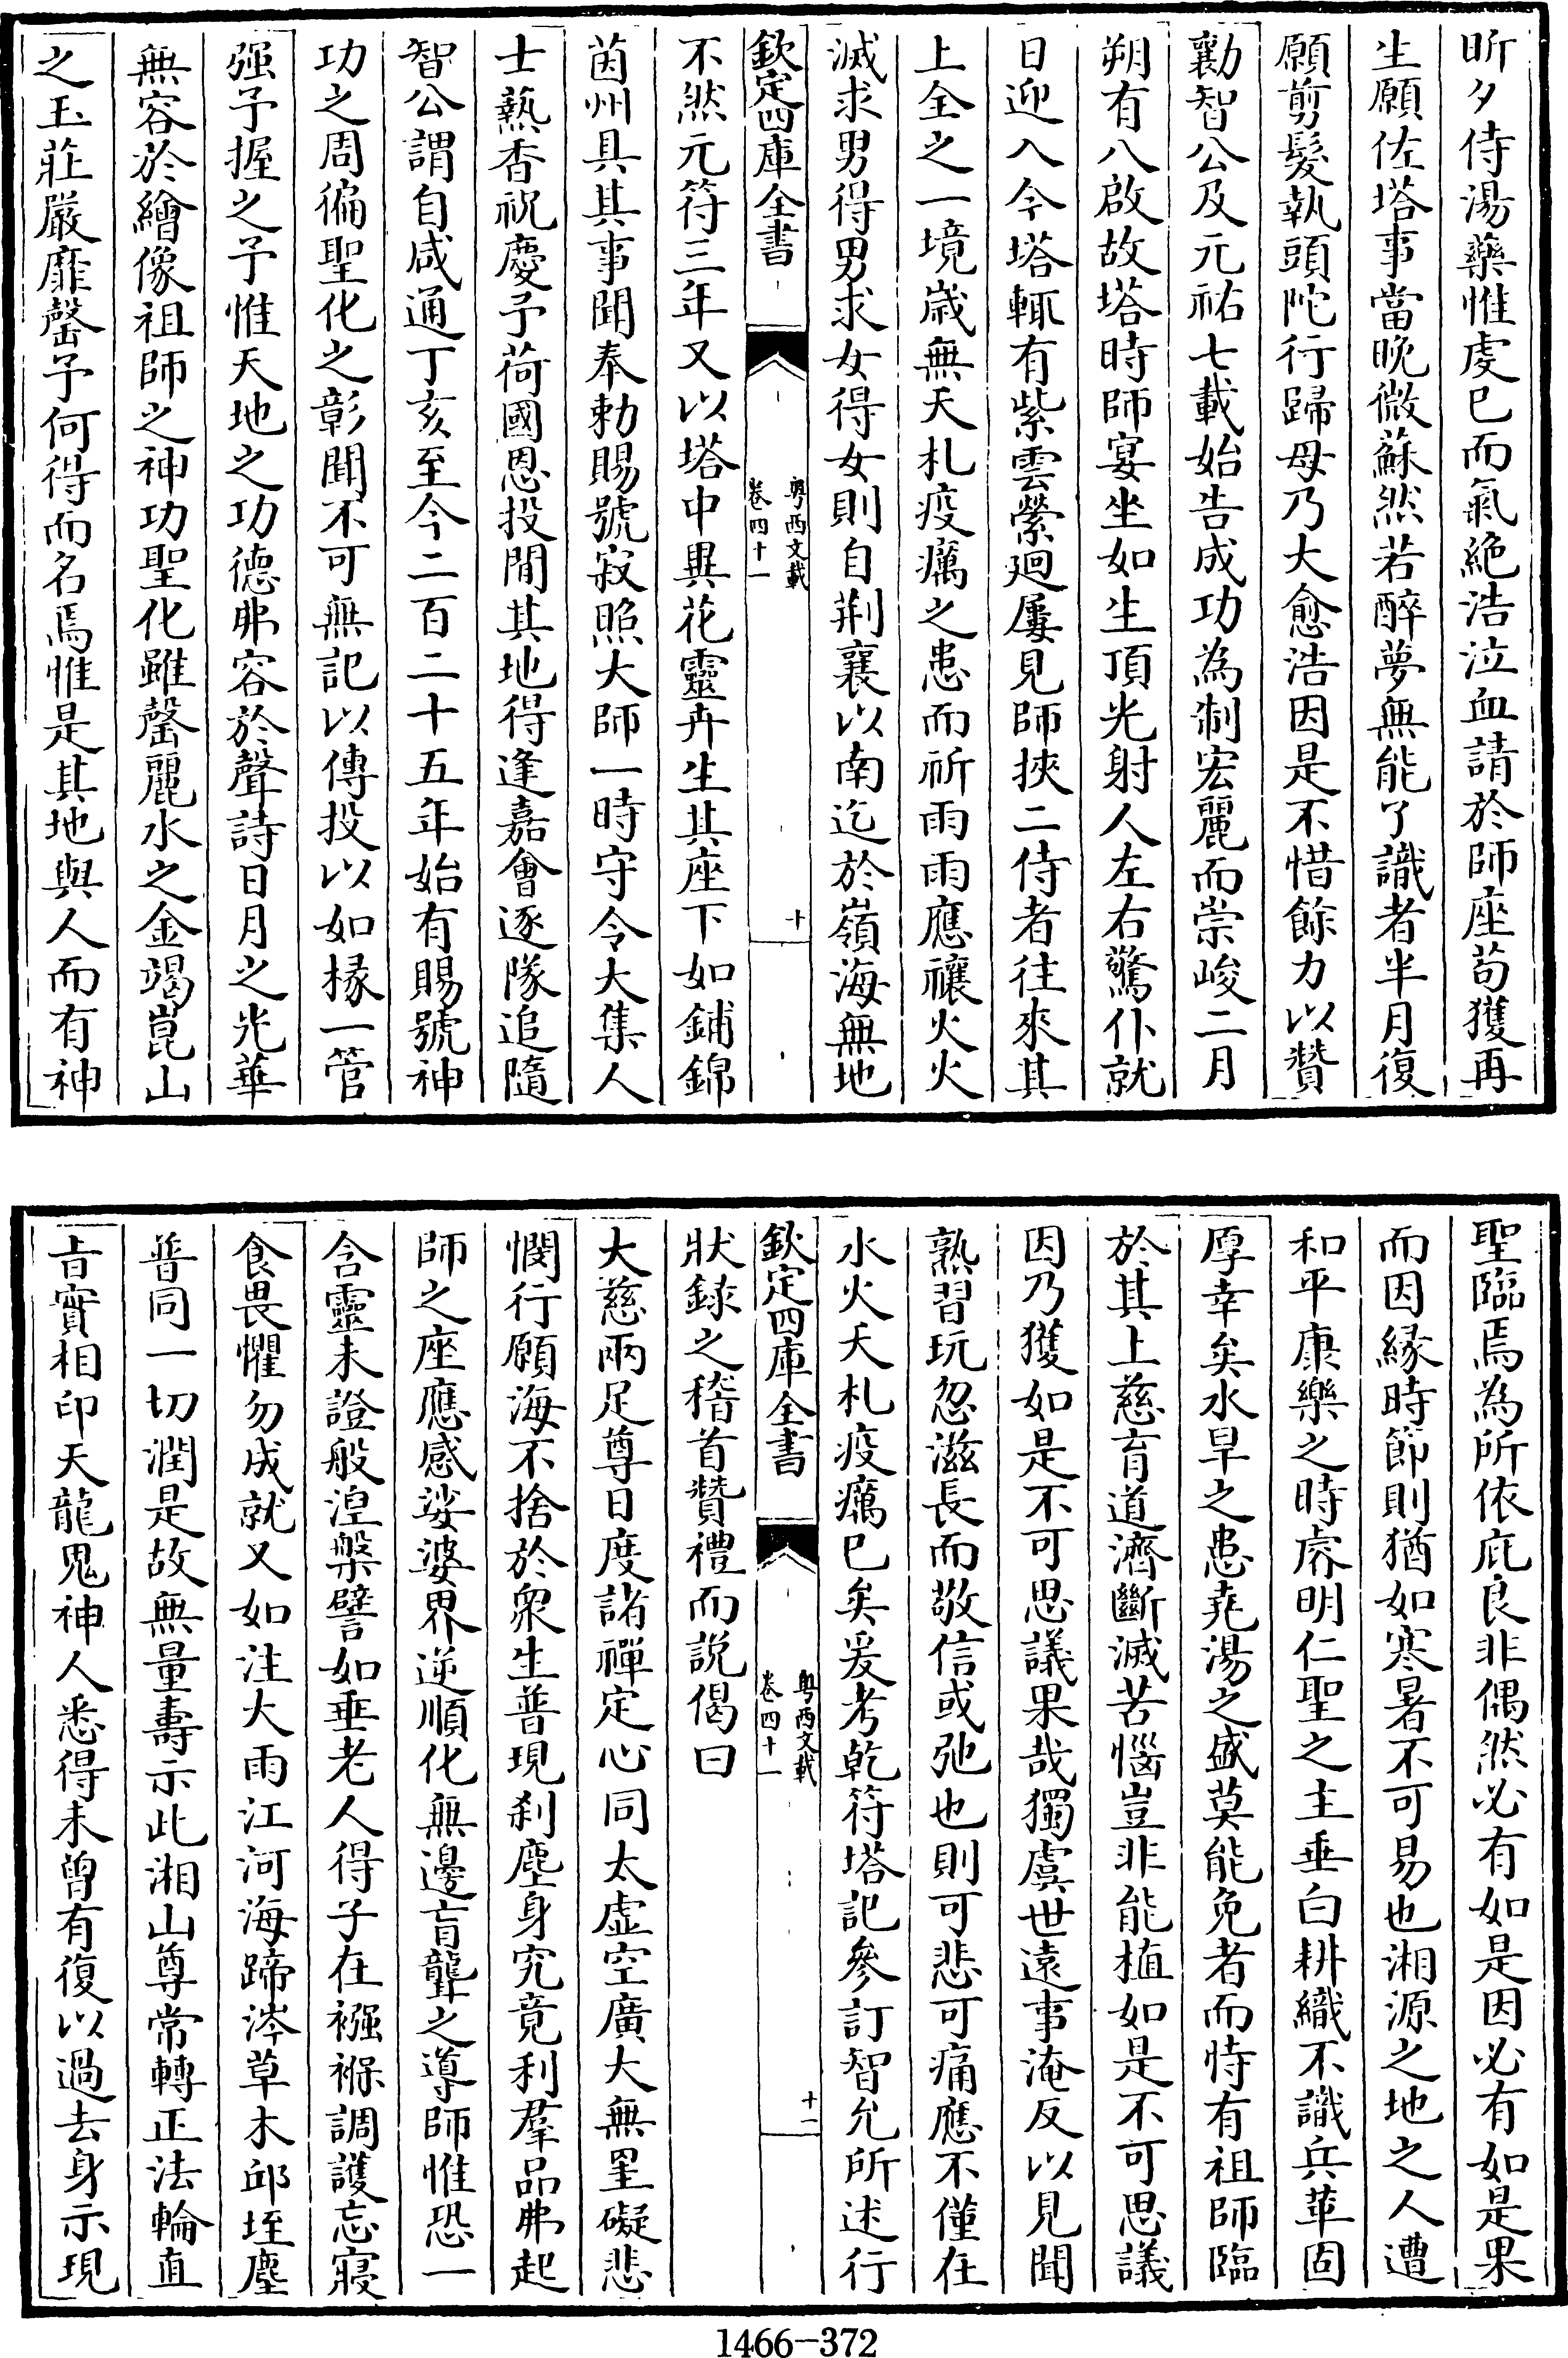 昕夕侍湯藥惟虔已而氣絶浩泣血請於師座苟獲再
生願佐塔事當晚微蘇然若醉夢無能了識者半月復
願剪髮執頭陀行歸母乃大愈浩因是不惜餘力以贊
勷智公及元祐七載始告成功為制宏麗而崇峻二月
朔有八啟故塔時師宴坐如生頂光射人左右驚仆就
日迎入今塔輒有紫雲縈廻屢見師挾二侍者往來其
上全之一境歲無夭札疫癘之患而祈雨雨應禳火火
滅求男得男求女得女則自荆襄以南迄於嶺海無地
欽定四庫全書
粤西文載
卷四十一
十
不然元符三年又以塔中異花靈卉生其座下如鋪錦
茵州具其事聞奉勅賜號寂照大師一時守令大集人
士爇香祝慶予荷國恩投閒其地得逢嘉會逐隊追隨
智公謂自咸通丁亥至今二百二十五年始有賜號神
功之周徧聖化之彰聞不可無記以傳投以如椽一管
强予握之予惟天地之功德弗容於聲詩日月之光華
無容於繪像祖師之神功聖化雖罄麗水之金竭崑山
之玉莊嚴靡罄予何得而名焉惟是其地與人而有神
聖臨焉為所依庇良非偶然必有如是因必有如是果
而因緣時節則猶如寒暑不可易也湘源之地之人遭
和平康樂之時睿明仁聖之主垂白耕織不識兵革固
厚幸矣水旱之患堯湯之盛莫能免者而恃有祖師臨
於其上慈育道濟斷滅苦惱豈非能植如是不可思議
因乃獲如是不可思議果哉獨虞世遠事淹反以見聞
熟習玩忽滋長而敬信或弛也則可悲可痛應不僅在
水火夭札疫癘已矣爰考乾符塔記參訂智允所述行
欽定四庫全書
粤西文載
卷四十一
十一
狀錄之稽首贊禮而説偈曰
大慈兩足尊日度諸禪定心同太虚空廣大無罣礙悲
憫行願海不捨於衆生普現刹塵身究竟利羣品弗起
師之座應感娑婆界逆順化無邊盲聾之導師惟恐一
含靈未證般湼槃譬如垂老人得子在襁褓調護忘寢
食畏懼勿成就又如注大雨江河海蹄涔草木邱垤塵
普同一切潤是故無量壽示此湘山尊常轉正法輪直
㫖實相印天龍鬼神人悉得未曾有復以過去身示現
1466-372